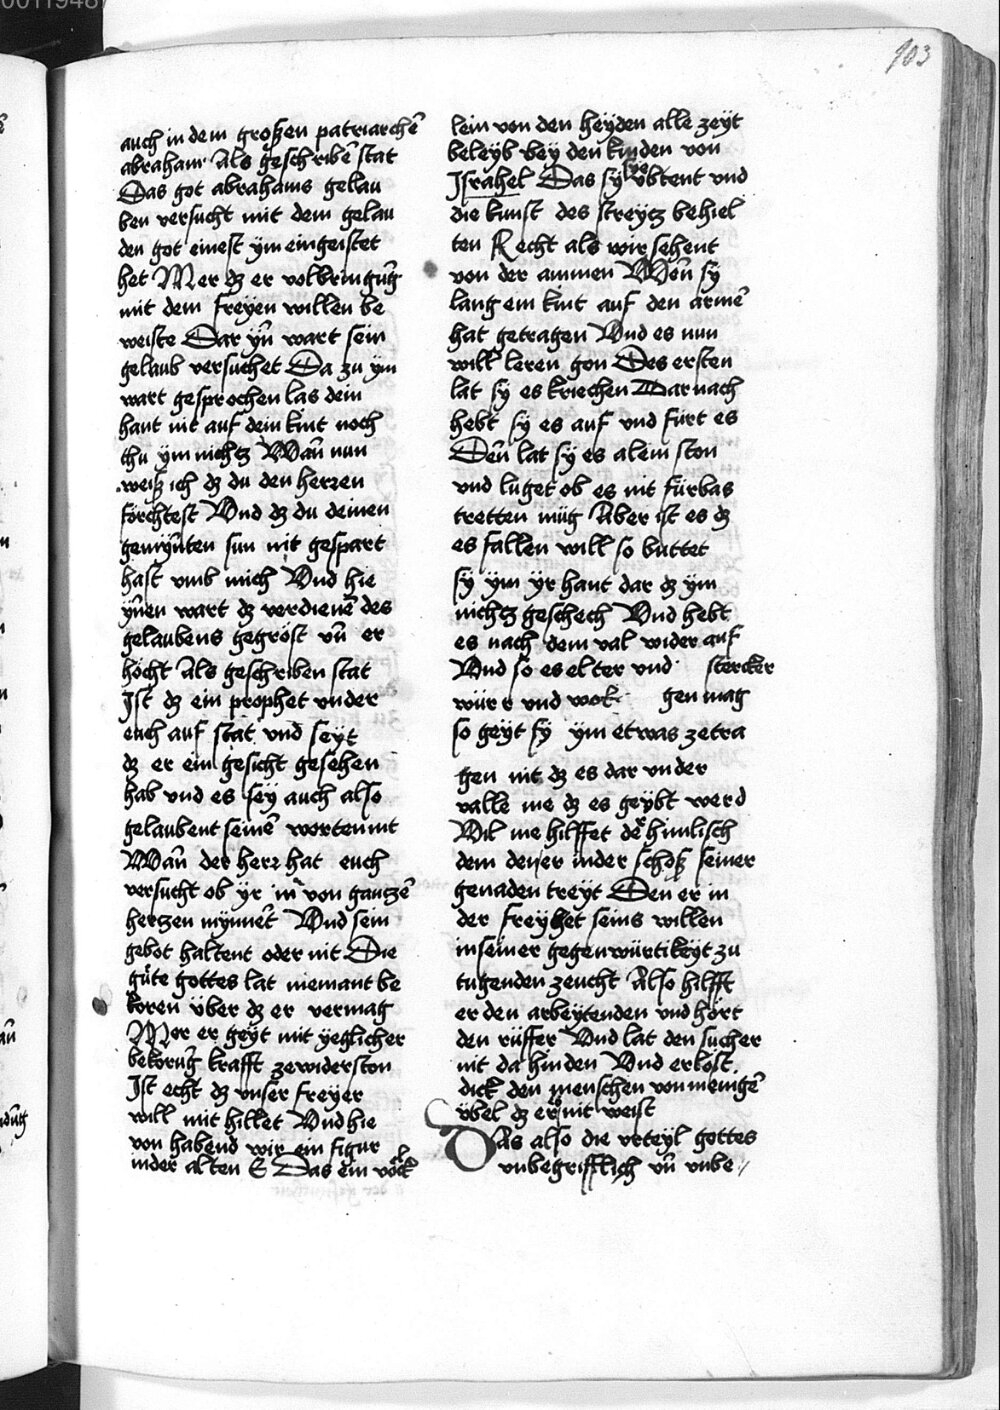 103
auch in dem großen patriarchē
abraham Als geschribē stat
Das got abrahams gelau
ben versucht mit dem gelau
den got einest ym eingeistet
het Mer dz er volbringūg
mit dem freyen willen be
weiste Dar yn̄ wart sein
gelaub versuchet Da zu ym
wart gesprochen las dein
hant nit auf dein kint noch
thu ym nichtz Wan̄ nun
weiß ich dz du den herren
förchtest Vnd dz du deinen
gemÿnten sun nit gespart
hast vmb mich Vnd hie
ÿnen wart dz verdienē des
gelaubens gegröst vn̄ er
höcht Als geschriben stat
Ist dz ein prophet vnder
euch auf stat vnd seyt
dz er ein gesicht gesehen
hab vnd es sey auch also
gelaubent seinē worten nit
Wan̄ der herr hat euch
versucht ob yr in von gantzē
hertzen mynnet Vnd sein
gebot haltent oder nit Die
güte gottes lat niemant be
koren über dz er vermag
Mer er geyt mit yeglicher
bekorūg krafft zewiderston
Ist echt dz vnser freyer
will mit hillet Vnd hie
von habend wir ein figur
in der alten E Das ein völck
lein von den heyden alle zeyt
beleyb bey den kinden von
Israhel Das sy sye übtent vnd
die kunst des streytz behiel
ten Recht als wir sehent
von der ammen Wen̄ sy
lang ein kint auf den armē
hat getragen Vnd es nun
will leren gon Des ersten
lat sy es kriechen Dar nach
hebt sy es auf vnd fürt es
Den̄ lat sy es alein ston
vnd luget ob es nit fürbas
tretten müg Aber ist es dz
es fallen will so buttet
sy ym yr hant dar dz ym
nichtz geschech Vnd hebt
es nach dem val wider auf
Vnd so es elter vnd stercker
würt vnd wol gen mag
so geyt sy ym etwas zetra
gen nit dz es dar vnder
valle me dz es geybt werd
Vil me hilffet der himlisch
dem den er in der schoß seiner
genaden treyt Den er in
der freyhet seins willen
in seiner gegenwürtikeyt zu
tugenden zeucht Also hilfft
er den arbeytenden vnd hört
den rüffer Vnd lat den sucher
nit da hinden Vnd erlost
dick den menschen von menigē
übel dz er nit weist
Das also die vrteyl gottes
vnbegrifflich vn̄ vnbe